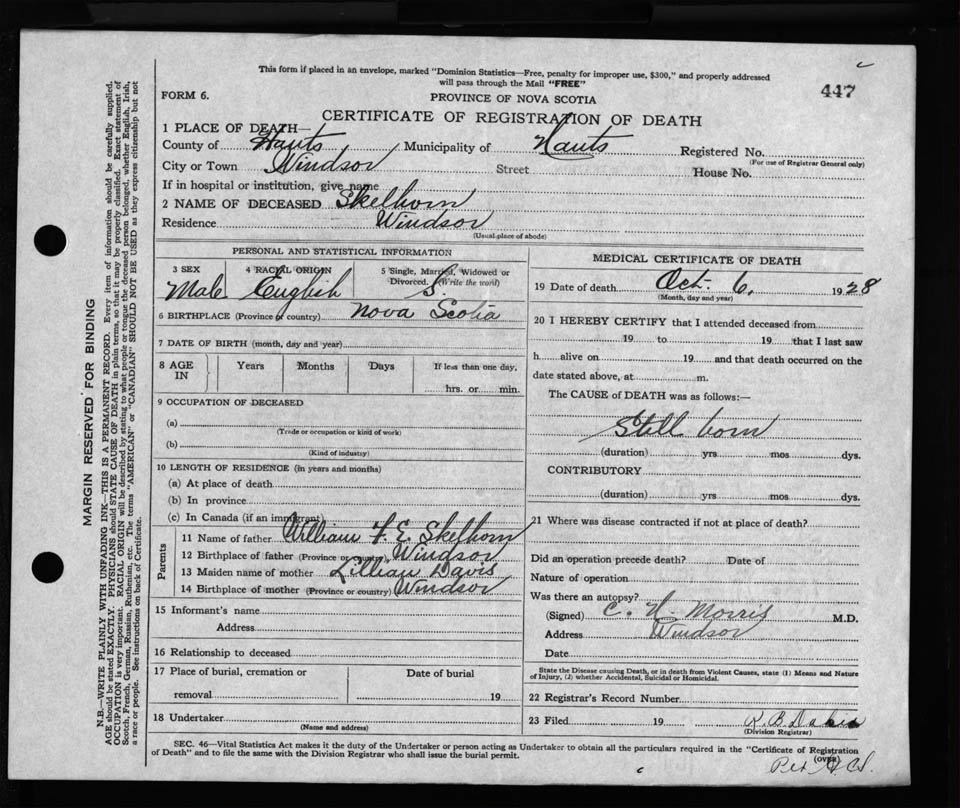 This form if placed in an envelope, marked "Dominion Statistics—Free, penalty for improper use, $300," and properly addressed
will pass through the Mail "FREE"
447
FORM 6.
PROVINCE OF NOVA SCOTIA
CERTIFICATE OF REGISTRATION OF DEATH
1 PLACE OF DEATH—
County of Hants Municipality of Hants Registered No.
(For use of Registrar General only)
City or Town Windsor Street House No.
If in hospital or institution, give name
2 NAME OF DECEASED Skelhorn
Residence Windsor
(Usual place of abode)
PERSONAL AND STATISTICAL INFORMATION
3 SEX 4 RACIAL ORIGIN 5 Single, Married, Widowed or
Divorced. (Write the word)
Male English S.
6 BIRTHPLACE (Province or country) Nova Scotia
7 DATE OF BIRTH (month, day and year)
8 AGE IN Years Months Days If less than one day,
hrs. or min.
9 OCCUPATION OF DECEASED
(a)
(Trade or occupation or kind of work)
(b)
(Kind of industry)
10 LENGTH OF RESIDENCE (in years and months)
(a) At place of death
(b) In province
(c) In Canada (if an immigrant)
Parents
11 Name of father William F. E. Skelhorn
12 Birthplace of father (Province or country) Windsor
13 Maiden name of mother Lillian Davis
14 Birthplace of mother (Province or country) Windsor
15 Informant's name
Address
16 Relationship to deceased
17 Place of burial, cremation or Date of burial
removal 19
18 Undertaker
(Name and address)
MEDICAL CERTIFICATE OF DEATH
19 Date of death Oct. 6, 1928
(Month, day and year)
20 I HEREBY CERTIFY that I attended deceased from
19 to 19 that I last saw
h alive on 19 and that death occurred on the
date stated above, at m.
The CAUSE of DEATH was as follows:—
Still born
(duration) yrs mos dys.
CONTRIBUTORY
(duration) yrs mos dys.
21 Where was disease contracted if not at place of death?
Did an operation precede death? Date of
Nature of operation
Was there an autopsy?
(Signed) C. H. Morris M.D.
Address Windsor
Date
State the Disease causing Death, or in death from Violent Causes, state (1) Means and Nature
of Injury, (2) whether Accidental, Suicidal or Homicidal.
22 Registrar's Record Number
23 Filed 19 K. B.
(Division Registrar)
SEC. 46—Vital Statistics Act makes it the duty of the Undertaker or person acting as Undertaker to obtain all the particulars required in the "Certificate of Registration
of Death" and to file the same with the Division Registrar who shall issue the burial permit.
(OVER)
Per
MARGIN RESERVED FOR BINDING
N.B.—WRITE PLAINLY WITH UNFADING INK—THIS IS A PERMANENT RECORD. Every item of information should be carefully supplied.
AGE should be stated EXACTLY. PHYSICIANS should STATE CAUSE OF DEATH in plain terms, so that it may be properly classified. Exact statement of
OCCUPATION is very important. RACIAL ORIGIN will be described by stating to what people or tongue the deceased person belonged, whether English, Irish,
Scotch, French, German, Russian, Ruthenian, etc. The terms "AMERICAN" or "CANADIAN" SHOULD NOT BE USED as they express citizenship but not
a race or people. See instructions on back of Certificate.